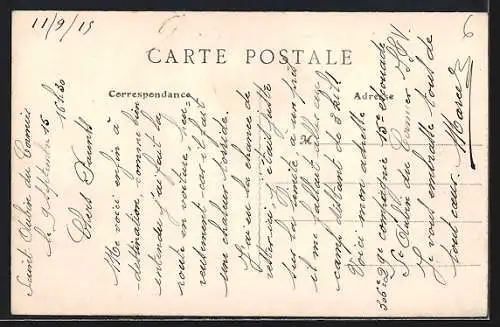 11/9/15
6
CARTE POSTALE
Correspondance
Adresse
M
Saint Aubin du Cormier
le 9 Septembre 15
10h30
Chers Parents
Me voici enfin à
destination, comme bien
entendu j'ai fait la
route en voiture, heu-
reusement car il fait
une chaleur torride.
J'ai eu la chance de
rester ici, il était juste
sur la limite, à un près
il me fallait aller au
camp distant de 3 kil 4
Voici mon adresse
2e compagnie 15e escouade
St Aubin du Cormier I&V.
Je vous embrasse tous de
tout cœur. Marcel